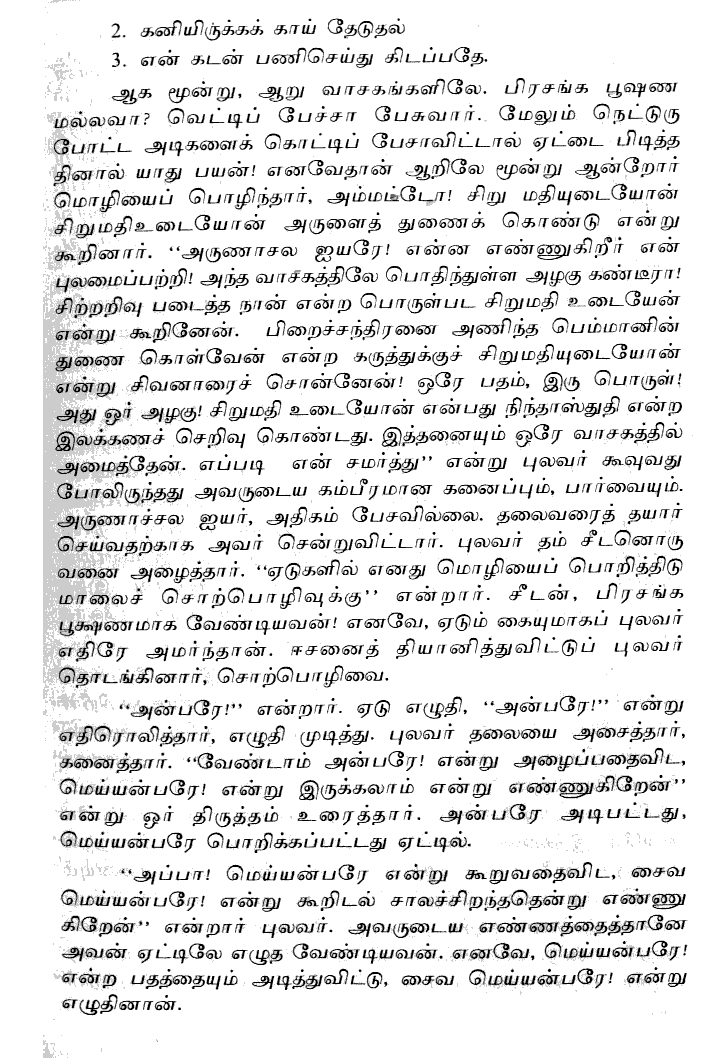 2. கனியிருக்கக் காய் தேடுதல்
3. என் கடன் பணிசெய்து கிடப்பதே.
ஆக மூன்று, ஆறு வாசகங்களிலே. பிரசங்க பூஷண
மல்லவா? வெட்டிப் பேச்சா பேசுவார். மேலும் நெட்டுரு
போட்ட அடிகளைக் கொட்டிப் பேசாவிட்டால் ஏட்டை பிடித்த
தினால் யாது பயன்! எனவேதான் ஆறிலே மூன்று ஆன்றோர்
மொழியைப் பொழிந்தார், அம்மட்டோ! சிறு மதியுடையோன்
சிறுமதிஉடையோன் அருளைத் துணைக் கொண்டு என்று
கூறினார். “அருணாசல ஐயரே! என்ன எண்ணுகிறீர் என்
புலமைப்பற்றி! அந்த வாசகத்திலே பொதிந்துள்ள அழகு கண்டீரா!
சிற்றறிவு படைத்த நான் என்ற பொருள்பட சிறுமதி உடையேன்
என்று கூறினேன். பிறைச்சந்திரனை அணிந்த பெம்மானின்
துணை கொள்வேன் என்ற கருத்துக்குச் சிறுமதியுடையோன்
என்று சிவனாரைச் சொன்னேன்! ஒரே பதம், இரு பொருள்!
அது ஓர் அழகு! சிறுமதி உடையோன் என்பது நிந்தாஸ்துதி என்ற
இலக்கணச் செறிவு கொண்டது. இத்தனையும் ஒரே வாசகத்தில்
அமைத்தேன். எப்படி என் சமர்த்து” என்று புலவர் கூவுவது
போலிருந்தது அவருடைய கம்பீரமான கனைப்பும், பார்வையும்.
அருணாச்சல ஐயர், அதிகம் பேசவில்லை. தலைவரைத் தயார்
செய்வதற்காக அவர் சென்றுவிட்டார். புலவர் தம் சீடனொரு
வனை அழைத்தார். “ஏடுகளில் எனது மொழியைப் பொறித்திடு
மாலைச் சொற்பொழிவுக்கு” என்றார். சீடன், பிரசங்க
பூக்ஷணமாக வேண்டியவன்! எனவே, ஏடும் கையுமாகப் புலவர்
எதிரே அமர்ந்தான். ஈசனைத் தியானித்துவிட்டுப் புலவர்
தொடங்கினார், சொற்பொழிவை.
“அன்பரே!” என்றார். ஏடு எழுதி, “அன்பரே!” என்று
எதிரொலித்தார், எழுதி முடித்து. புலவர் தலையை அசைத்தார்,
கனைத்தார். “வேண்டாம் அன்பரே! என்று அழைப்பதைவிட,
மெய்யன்பரே! என்று இருக்கலாம் என்று எண்ணுகிறேன்”
என்று ஓர் திருத்தம் உரைத்தார். அன்பரே அடிபட்டது,
மெய்யன்பரே பொறிக்கப்பட்டது ஏட்டில்.
“அப்பா! மெய்யன்பரே என்று கூறுவதைவிட, சைவ
மெய்யன்பரே! என்று கூறிடல் சாலச்சிறந்ததென்று எண்ணு
கிறேன்” என்றார் புலவர். அவருடைய எண்ணத்தைத்தானே
அவன் ஏட்டிலே எழுத வேண்டியவன். எனவே, மெய்யன்பரே!
என்ற பதத்தையும் அடித்துவிட்டு, சைவ மெய்யன்பரே! என்று
எழுதினான்.